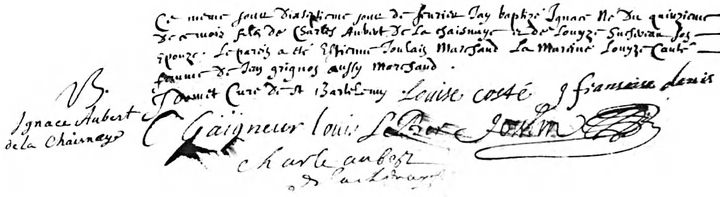 Ce mesme jour dixseptieme jour de fevrier Jay baptizé Ignace Né du quinzieme
de ce mois fils de Charles Aubert de la Chaisnaye et de Louyze Jos
Epouze. Le parein a été Estienne Joulain Marchand La Mareine Louyze Cousté
femme de Jean grignon aussy Marchand.
B.
Ignace Aubert
de la Chaisnaye
Cure de St Bartelemy Louise costé françoise denis
Gaigneur louis Joulin
charle aubert
de la